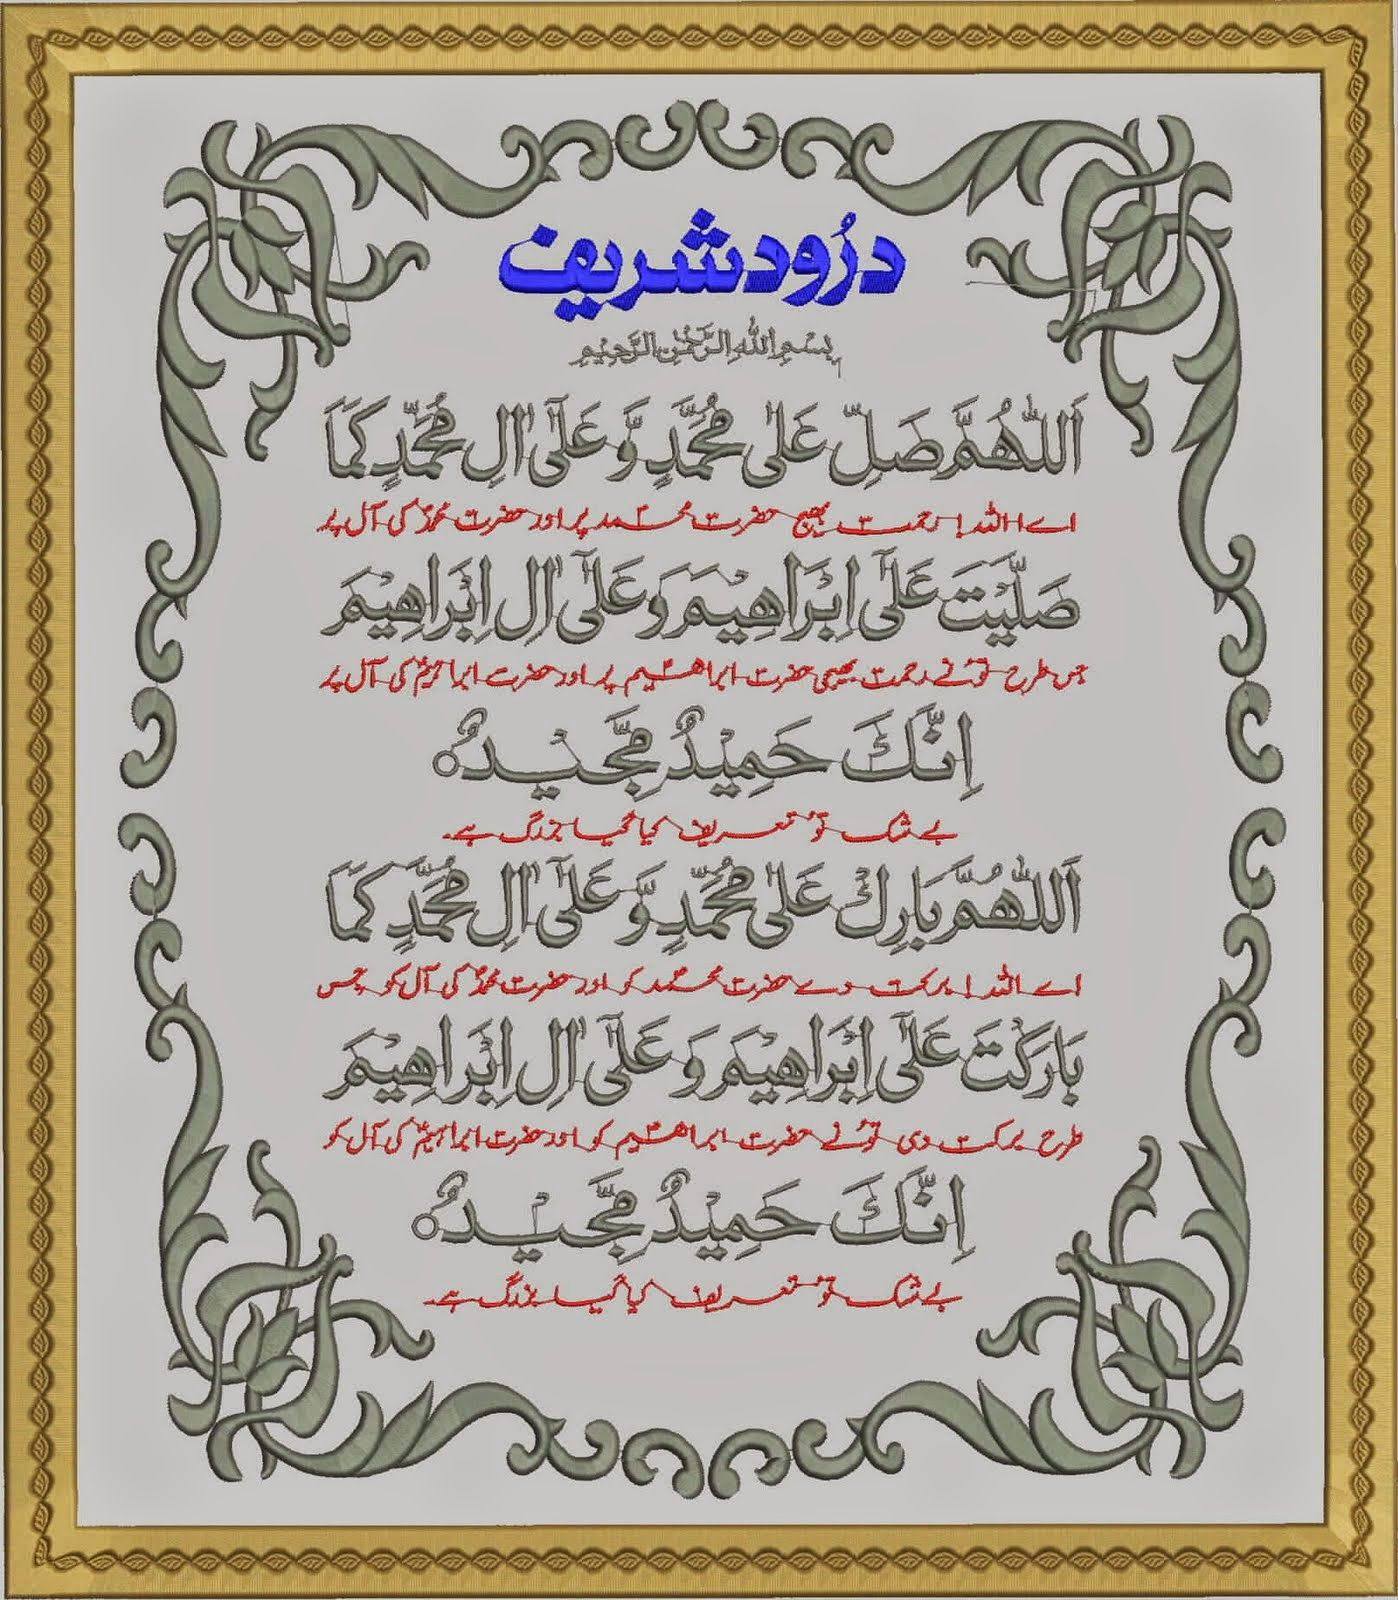 درُود شریف
بِسْمِ اللهِ الرَّحْمٰنِ الرَّحِيْمِ
اَللّٰهُمَّ صَلِّ عَلٰى مُحَمَّدٍ وَّ عَلٰٓى اٰلِ مُحَمَّدٍ كَمَا
اے اللہ! رحمت بھیج حضرت محمدؐ پر اور حضرت محمدؐ کی آل پر
صَلَّيْتَ عَلٰٓى اِبْرَاهِيْمَ وَ عَلٰٓى اٰلِ اِبْرَاهِيْمَ
جس طرح تُو نے رحمت بھیجی حضرت ابراھیم پر اور حضرت ابراہیمؑ کی آل پر
اِنَّكَ حَمِيْدٌ مَّجِيْدٌ ه
بے شک تُو تعریف کیا گیا بزرگ ہے۔
اَللّٰهُمَّ بَارِكْ عَلٰى مُحَمَّدٍ وَّ عَلٰٓى اٰلِ مُحَمَّدٍ كَمَا
اے اللہ! برکت دے حضرت محمدؐ کو اور حضرت محمدؐ کی آل کو جس
بَارَكْتَ عَلٰٓى اِبْرَاهِيْمَ وَ عَلٰٓى اٰلِ اِبْرَاهِيْمَ
طرح برکت دی تُو نے حضرت ابراھیم کو اور حضرت ابراہیمؑ کی آل کو
اِنَّكَ حَمِيْدٌ مَّجِيْدٌ ه
بے شک تُو تعریف کیا گیا بزرگ ہے۔